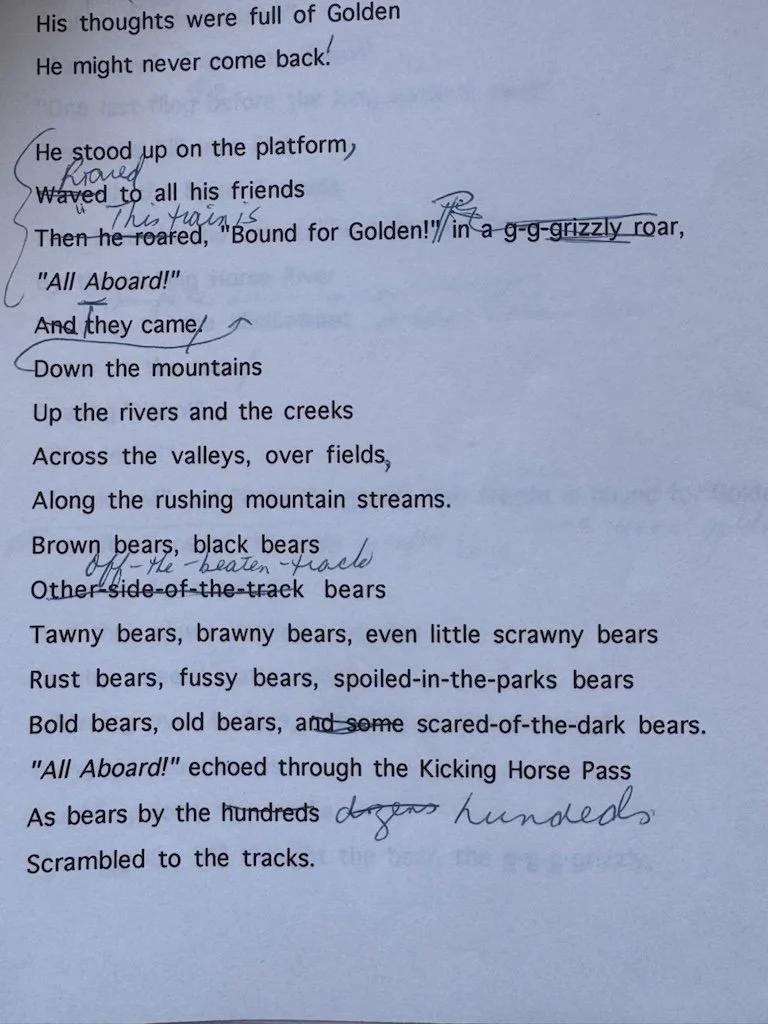 His thoughts were full of Golden
He might never come back!
He stood up on the platform,
Roared
Waved to all his friends
This train is
Then he roared, "Bound for Golden!" in a g-g-grizzly roar,
"All Aboard!"
And They came!
Down the mountains
Up the rivers and the creeks
Across the valleys, over fields,
Along the rushing mountain streams.
Brown bears, black bears
Off-the-beaten-track
Other-side-of-the-track bears
Tawny bears, brawny bears, even little scrawny bears
Rust bears, fussy bears, spoiled-in-the-parks bears
Bold bears, old bears, and some scared-of-the-dark bears.
"All Aboard!" echoed through the Kicking Horse Pass
As bears by the hundreds dozens hundeds
Scrambled to the tracks.